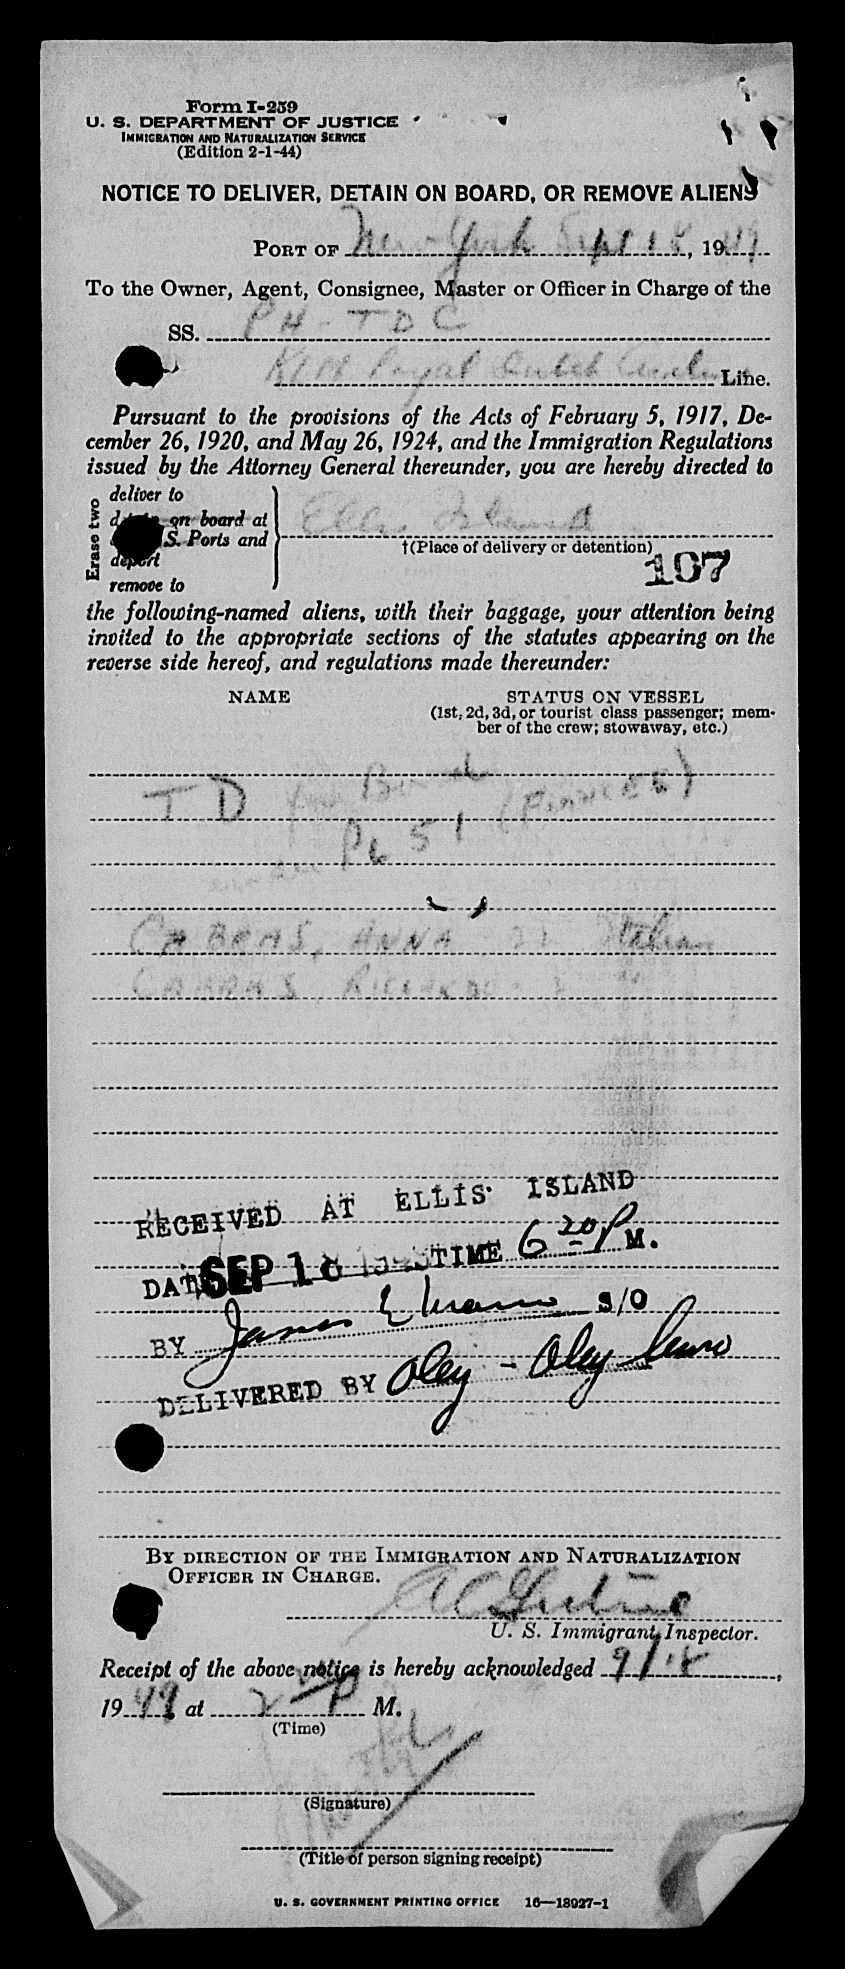 Form I-259
U. S. DEPARTMENT OF JUSTICE
IMMIGRATION AND NATURALIZATION SERVICE
(Edition 2-1-44)
NOTICE TO DELIVER, DETAIN ON BOARD, OR REMOVE ALIENS
PORT OF New York Sept 18, 1949
To the Owner, Agent, Consignee, Master or Officer in Charge of the
SS. PH-TDC
KLM Royal Dutch Airlines Line.
Pursuant to the provisions of the Acts of February 5, 1917, De-
cember 26, 1920, and May 26, 1924, and the Immigration Regulations
issued by the Attorney General thereunder, you are hereby directed to
Erase two
deliver to
on board at
S. Ports and
deport
remove to
Ellis Island
†(Place of delivery or detention)
107
the following-named aliens, with their baggage, your attention being
invited to the appropriate sections of the statutes appearing on the
reverse side hereof, and regulations made thereunder:
NAME
STATUS ON VESSEL
(1st, 2d, 3d, or tourist class passenger; mem-
ber of the crew; stowaway, etc.)
T D for Bond (FIANCEE)
PL 51
CABRAS, ANNA 22 Italian
CABRAS, RICCARDO
RECEIVED AT ELLIS ISLAND
DATE SEP 18 TIME 6 20 P M.
BY James S/O
DELIVERED BY Oley - Oley
BY DIRECTION OF THE IMMIGRATION AND NATURALIZATION
OFFICER IN CHARGE.
U. S. Immigrant Inspector.
Receipt of the above notice is hereby acknowledged 9/18,
1949 at P M.
(Time)
(Signature)
(Title of person signing receipt)
U. S. GOVERNMENT PRINTING OFFICE 16—18927-1